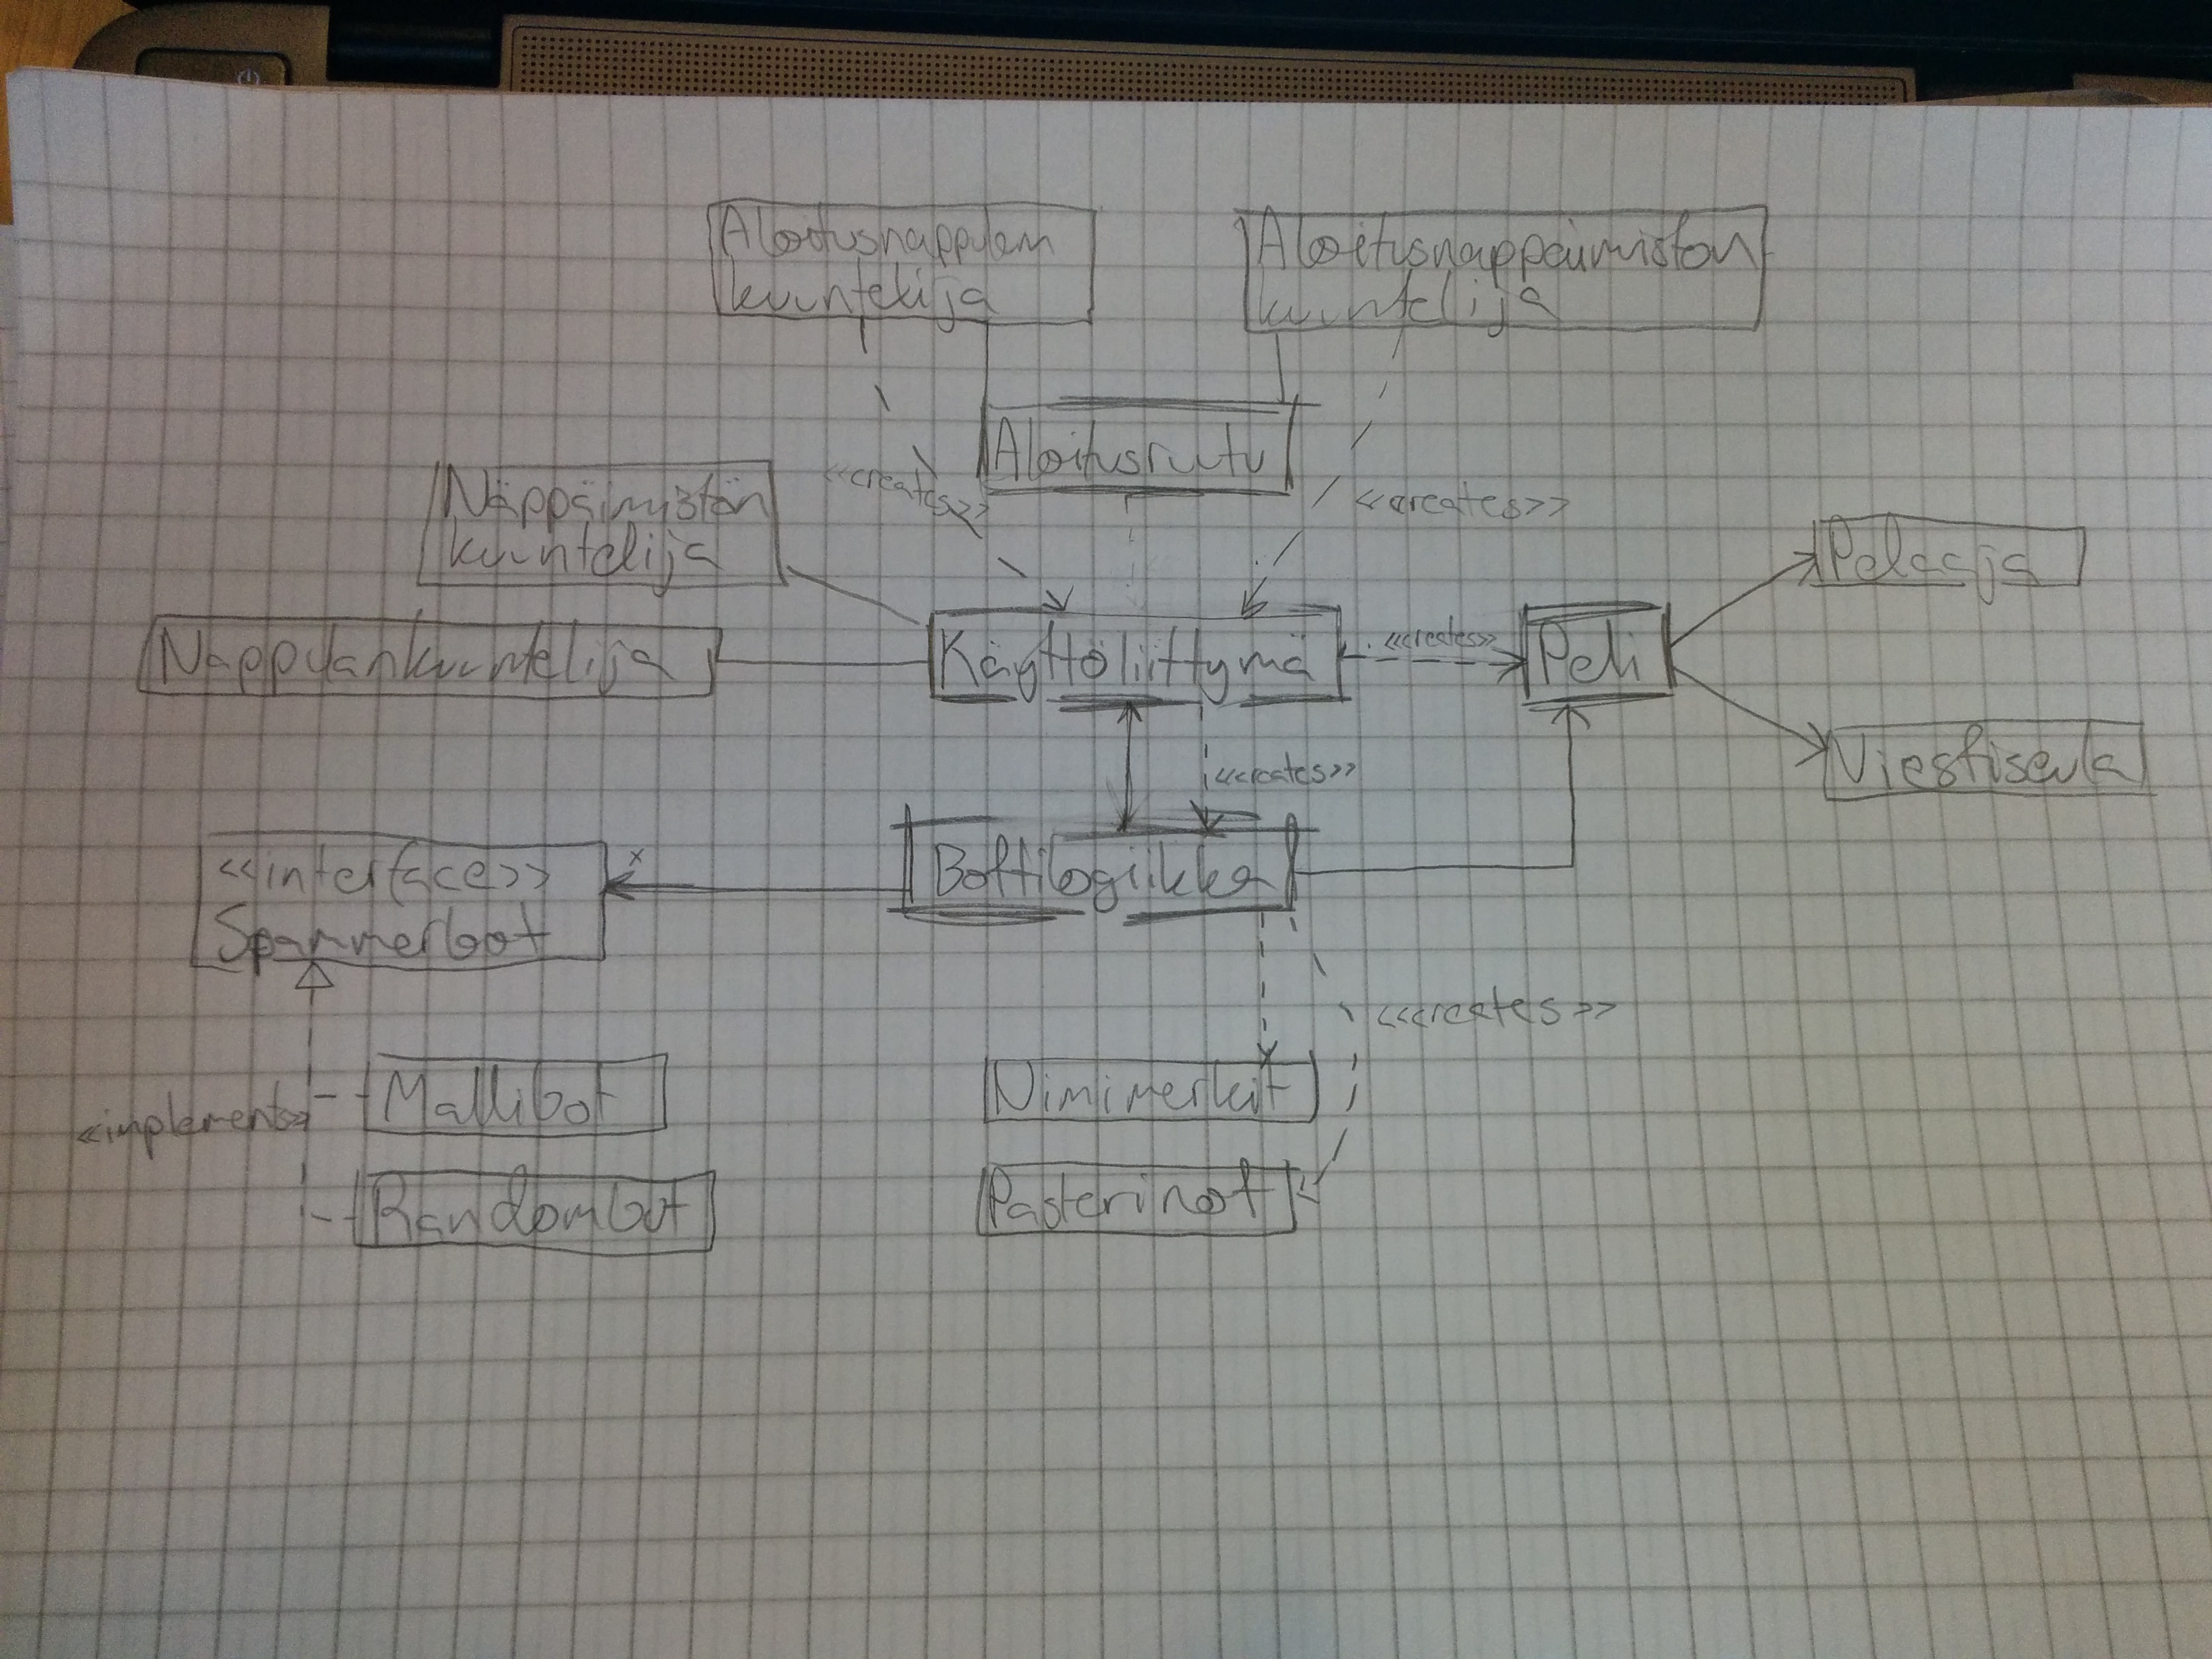 Aloitusnappulan
kuuntelija
Aloitusnäppäimistön
kuuntelija
Aloitusruutu
<<creates>>
<<creates>>
Näppäimistön
kuuntelija
Pelaaja
Nappulankuuntelija
Käyttöliittymä
<<creates>>
Peli
Viestiseula
<<creates>>
<<interface>>
Spammerbot
*
Bottilogiikka
<<creates>>
Mallibot
Nimimerkit
<<implements>>
Randombot
Pasterinot